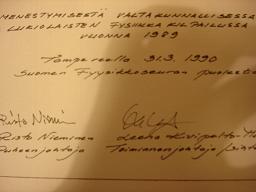 MENESTYMISESTÄ VALTAKUNNALLISESSA
LUKIOLAISTEN FYSIIKKAKILPAILUSSA
VUONNA 1989
Tampereella 31.3. 1990
Suomen Fyysikkoseuran puolesta
Risto Nieminen
Puheenjohtaja
Leena Kivipelto-
Toiminnanjohtaja